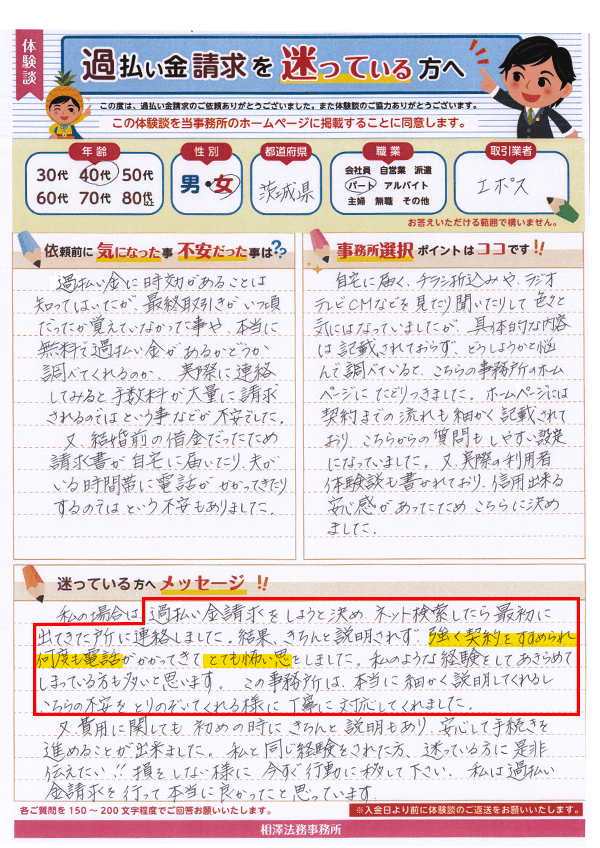 体験談
過払い金請求を迷っている方へ
この度は、過払い金請求のご依頼ありがとうございました。また体験談のご協力ありがとうございます。
この体験談を当事務所のホームページに掲載することに同意します。
年齢
30代 40代 50代
60代 70代 80代以上
性別
男・女
都道府県
茨城県
職業
会社員 自営業 派遣
パート アルバイト
主婦 無職 その他
取引業者
エポス
お答えいただける範囲で構いません。
依頼前に気になった事 不安だった事は??
過払い金に時効があることは
知ってはいたが、最終取引がいつ頃
だったか覚えていなかった事や、本当に
無料で過払い金があるかどうか、
調べてくれるのか、実際に連絡
してみると手数料が大量に請求
されるのではという事などが不安でした。
又、結婚前の借金だったため
請求書が自宅に届いたり、夫が
いる時間帯に電話がかかってきたり
するのではという不安もありました。
事務所選択ポイントはココです!!
自宅に届く、チラシ折込みや、ラジオ
テレビCMなどを見たり聞いたりして色々と
気にはなっていましたが、具体的な内容
は記載されておらず、どうしようかと悩
んで調べていると、こちらの事務所のホーム
ページにたどりつきました。ホームページには
契約までの流れも細かく記載されて
おり、こちらからの質問もしやすい設定
になっていました。又、実際の利用者
体験談も書かれており、信用出来る
安心感があったためこちらに決め
ました。
迷っている方へメッセージ!!
私の場合は、過払い金請求をしようと決め、ネット検索したら最初に
出てきた所に連絡しました。結果、きちんと説明されず、強く契約をすすめられ
何度も電話がかかってきてとても怖い思をしました。私のような経験をしてあきらめて
しまっている方も多いと思います。この事務所は、本当に細かく説明してくれるし
こちらの不安をとりのぞいてくれる様に丁寧に対応してくれました。
又、費用に関しても初めの時にきちんと説明もあり、安心して手続きを
進めることが出来ました。私と同じ経験をされた方、迷っている方に是非
伝えたい!!損をしない様に今すぐ行動に移して下さい。私は過払い
金請求を行って本当に良かったと思っています。
各ご質問を150~200文字程度でご回答お願いいたします。
※入金日より前に体験談のご返送をお願いいたします。
相澤法務事務所